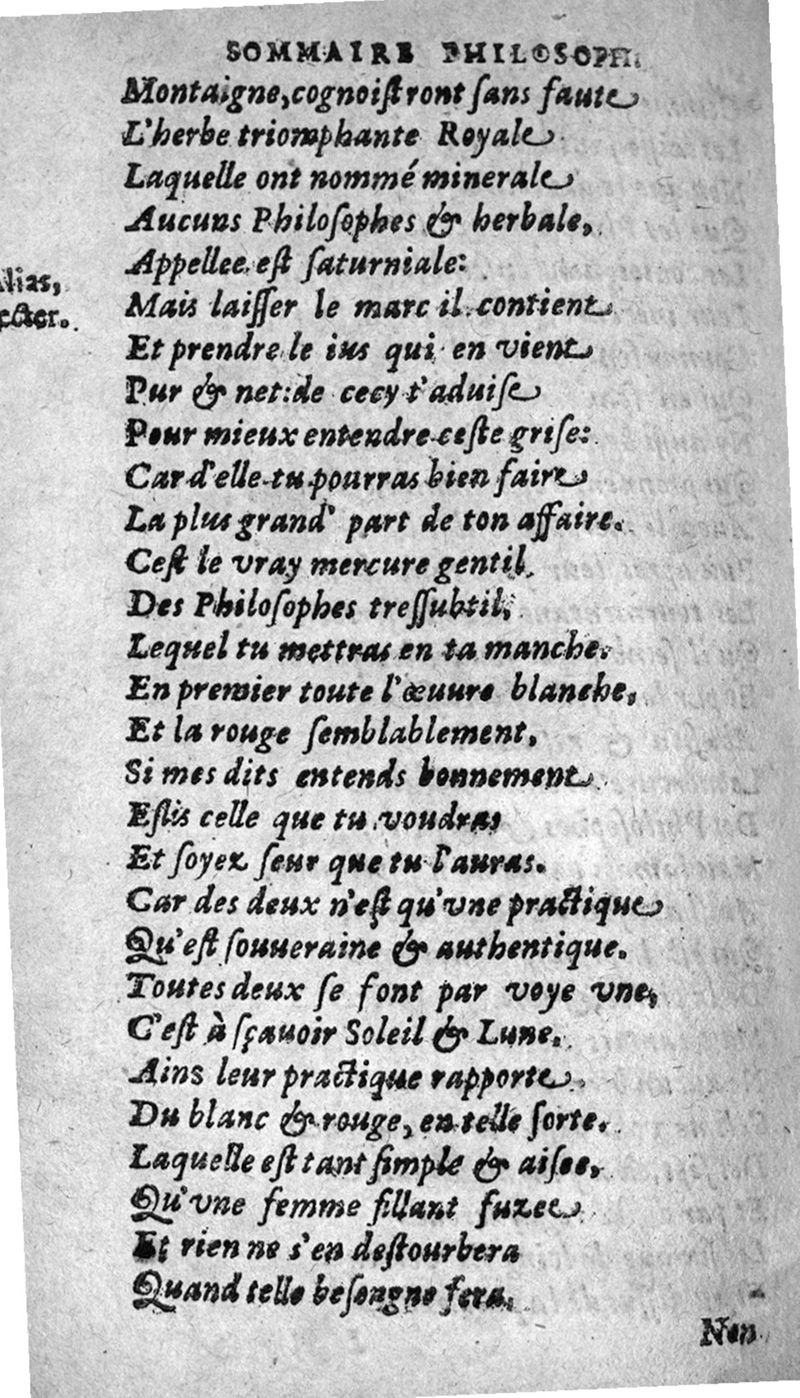 SOMMAIRE PHILOSOPH.
Montaigne, cognoiſtront ſans faute
L'herbe triomphante Royale
Laquelle ont nommé minerale
Aucuns Philoſophes & herbale,
Appellee eſt ſaturniale:
Alias,
Mais laiſſer le marc il contient
ecter.
Et prendre le ius qui en vient
Pur & net: de cecy t'aduiſe
Pour mieux entendre ceſte griſe:
Car d'elle tu pourras bien faire
La plus grand' part de ton affaire.
Ceſt le vray mercure gentil
Des Philoſophes treſſubtil,
Lequel tu mettras en ta manche.
En premier toute l'œuure blanche,
Et la rouge ſemblablement,
Si mes dits entends bonnement
Eſlis celle que tu voudras
Et ſoyez ſeur que tu l'auras.
Car des deux n'eſt qu'vne practique
Qu'eſt ſouueraine & authentique.
Toutes deux ſe font par voye vne,
C'eſt à ſçauoir Soleil & Lune.
Ains leur practique rapporte
Du blanc & rouge, en telle ſorte.
Laquelle eſt tant ſimple & aiſee,
Qu'vne femme fillant fuzee
Et rien ne s'en deſtourbera
Quand telle beſongne fera.
Non